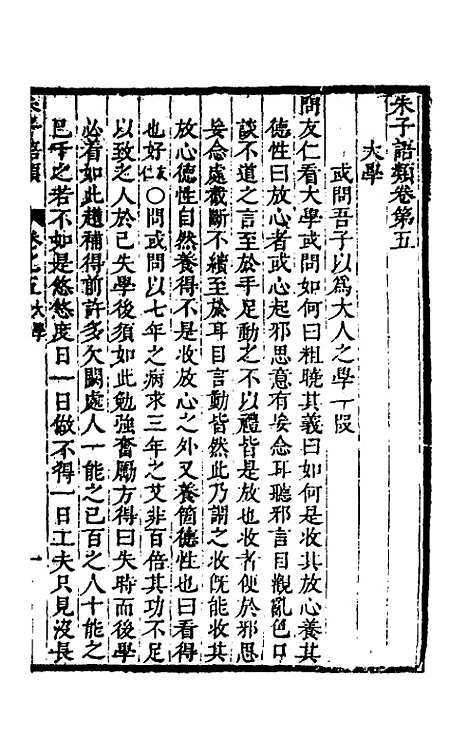 朱子語類卷第五
大學
或問吾子以爲大人之學一段
問友仁看大學或問如何曰粗曉其義曰如何是收其放心養其
德性曰放心者或心起邪思意有妄念耳聽邪言目觀亂色口
談不道之言至於手足動之不以禮皆是放也收者便於邪思
妄念處截斷不續至於耳目言動皆然此乃謂之收既能收其
放心德性自然養得不是收放心之外又養箇德性也曰看得
也好友仁○問或問以七年之病求三年之艾非百倍其功不足
以致之人於已失學後須如此勉強奮勵方得曰失時而後學
必着如此趲補得前許多欠闕處人一能之己百之人十能之
己千之若不如是悠悠度日一日做不得一日工夫只見沒長
朱子語類 卷之五 大學 一